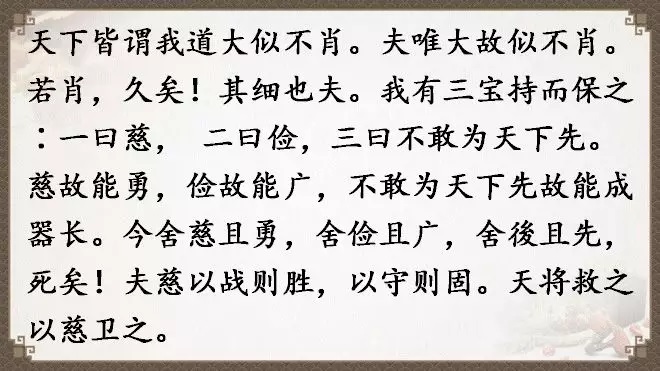 天下皆谓我道大似不肖。夫唯大故似不肖。
若肖，久矣！其细也夫。我有三宝持而保之
：一曰慈， 二曰俭，三曰不敢为天下先。
慈故能勇，俭故能广，不敢为天下先故能成
器长。今舍慈且勇，舍俭且广，舍後且先，
死矣！夫慈以战则胜，以守则固。天将救之
以慈卫之。